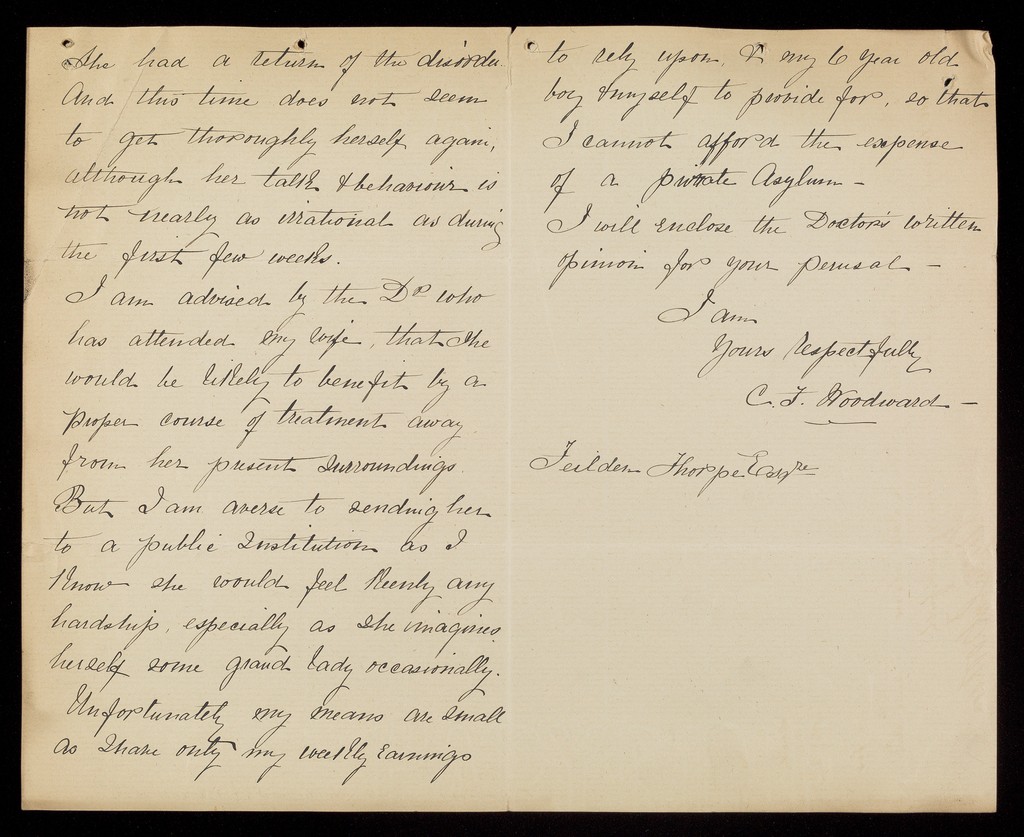 She had a return of the disorder.
And this time does not seem
to get thoroughly herself again,
although her talk & behaviour is
not nearly as irrational as during
the first few weeks.
I am advised by the Dr who
has attended my wife, that she
would be likely to benefit by a
proper course of treatment away
from her present surroundings.
But I am averse to sending her
to a public Institution as I
know she would feel keenly any
hardship, especially as she imagines
herself some grand lady occasionally.
Unfortunately my means are small
as I have only my weekly earnings
to rely upon, & my 6 year old
boy & myself to provide for, so that
I cannot afford the expense
of a private Asylum —
I will enclose the Doctor's written
opinion for your perusal —
I am
Yours respectfully
C. F. Woodward —
Feilden Thorpe Esqre